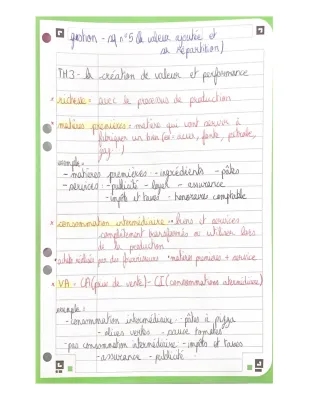 gestion - sq n°5 (la valeur ajoutée et
sa répartition)
TH3 - la création de valeur et performance
* richesse = avec le processus de production
* matières premières = matière qui vont servir à
fabriquer un bien (ex: acier, fonte, pétrole,
gaz...)
exemple =
- matières premières - ingrédients - pâtes
- services : - publicité - loyer - assurance
- impôts et taxes - honoraires comptable
* consommation intermédiaire = • biens et services
complètement transformés ou utiliser lors
de la production
• achats réalisés par des fournisseurs • matières premières + service
* VA = CA (prix de vente) - CI (consommations intermédiaire)
exemple :
- consommation intermédiaire - pâtes à pizza
- olives vertes - sauce tomates
- pas consommation intermédiaire - impôts et taxes
- assurance - publicité